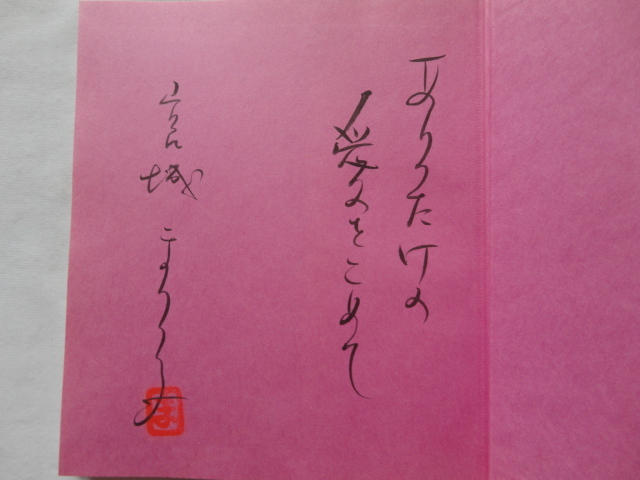 ありったけの
愛をこめて
宮城 まり子
ま